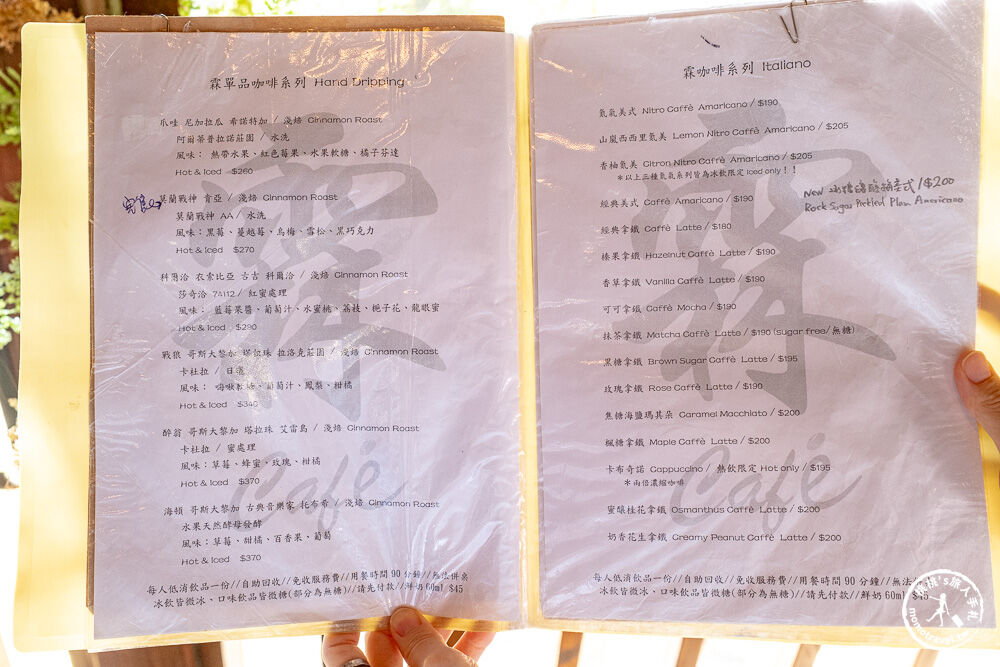 霖單品咖啡系列 Hand Dripping
爪哇 尼加拉瓜 希諾特加 / 淺焙 Cinnamon Roast
阿爾蒂普拉諾莊園 / 水洗
風味： 熱帶水果、紅色莓果、水果軟糖、橘子芬達
Hot & Iced $260
莫蘭戰神 肯亞 / 淺焙 Cinnamon Roast
莫蘭戰神 AA / 水洗
風味：黑莓、蔓越莓、烏梅、雪松、黑巧克力
Hot & Iced $270
科爾洽 衣索比亞 古吉 科爾洽 / 淺焙 Cinnamon Roast
莎奇洽 74112 / 紅蜜處理
風味： 藍莓果醬、葡萄汁、水蜜桃、荔枝、梔子花、龍眼蜜
Hot & Iced $290
戰狼 哥斯大黎加 塔拉珠 拉洛克莊園 / 淺焙 Cinnamon Roast
卡杜拉 / 日曬
風味： 嗨啾軟糖、葡萄汁、鳳梨、柑橘
Hot & Iced $340
醉翁 哥斯大黎加 塔拉珠 艾雷島 / 淺焙 Cinnamon Roast
卡杜拉 / 蜜處理
風味：草莓、蜂蜜、玫瑰、柑橘
Hot & Iced $370
海頓 哥斯大黎加 古典音樂家 托布希 / 淺焙 Cinnamon Roast
水果天然酵母發酵
風味：草莓、甜橘、百香果、葡萄
Hot & Iced $370
每人低消飲品一份//自助回收//免收服務費//用餐時間 90 分鐘//無法併桌
冰飲皆微冰、口味飲品皆微糖(部分為無糖)//請先付款//鮮奶 60ml $45
霖 Café
霖咖啡系列 Italiano
氮氣美式 Nitro Caffè Amaricano / $190
山嵐西西里氮美 Lemon Nitro Caffè Amaricano / $205
香柚氮美 Citron Nitro Caffè Amaricano / $205
＊以上三種氮氣系列皆為冰飲限定 Iced only！！
經典美式 Caffè Amaricano / $190
New 冰糖梅釀美式 / $200
Rock Sugar Pickled Plum Americano
經典拿鐵 Caffè Latte / $180
榛果拿鐵 Hazelnut Caffè Latte / $190
香草拿鐵 Vanilla Caffè Latte / $190
可可拿鐵 Caffè Mocha / $190
抹茶拿鐵 Matcha Caffè Latte / $190 (sugar free/無糖)
黑糖拿鐵 Brown Sugar Caffè Latte / $195
玫瑰拿鐵 Rose Caffè Latte / $190
焦糖海鹽瑪其朵 Caramel Macchiato / $200
楓糖拿鐵 Maple Caffè Latte / $200
卡布奇諾 Cappuccino / 熱飲限定 Hot only / $195
＊兩倍濃縮咖啡
蜜釀桂花拿鐵 Osmanthus Caffè Latte / $200
奶香花生拿鐵 Creamy Peanut Caffè Latte / $200
每人低消飲品一份//自助回收//免收服務費//用餐時間 90 分鐘//無法
冰飲皆微冰、口味飲品皆微糖(部分為無糖)//請先付款//鮮奶 60ml $45
霖 Café